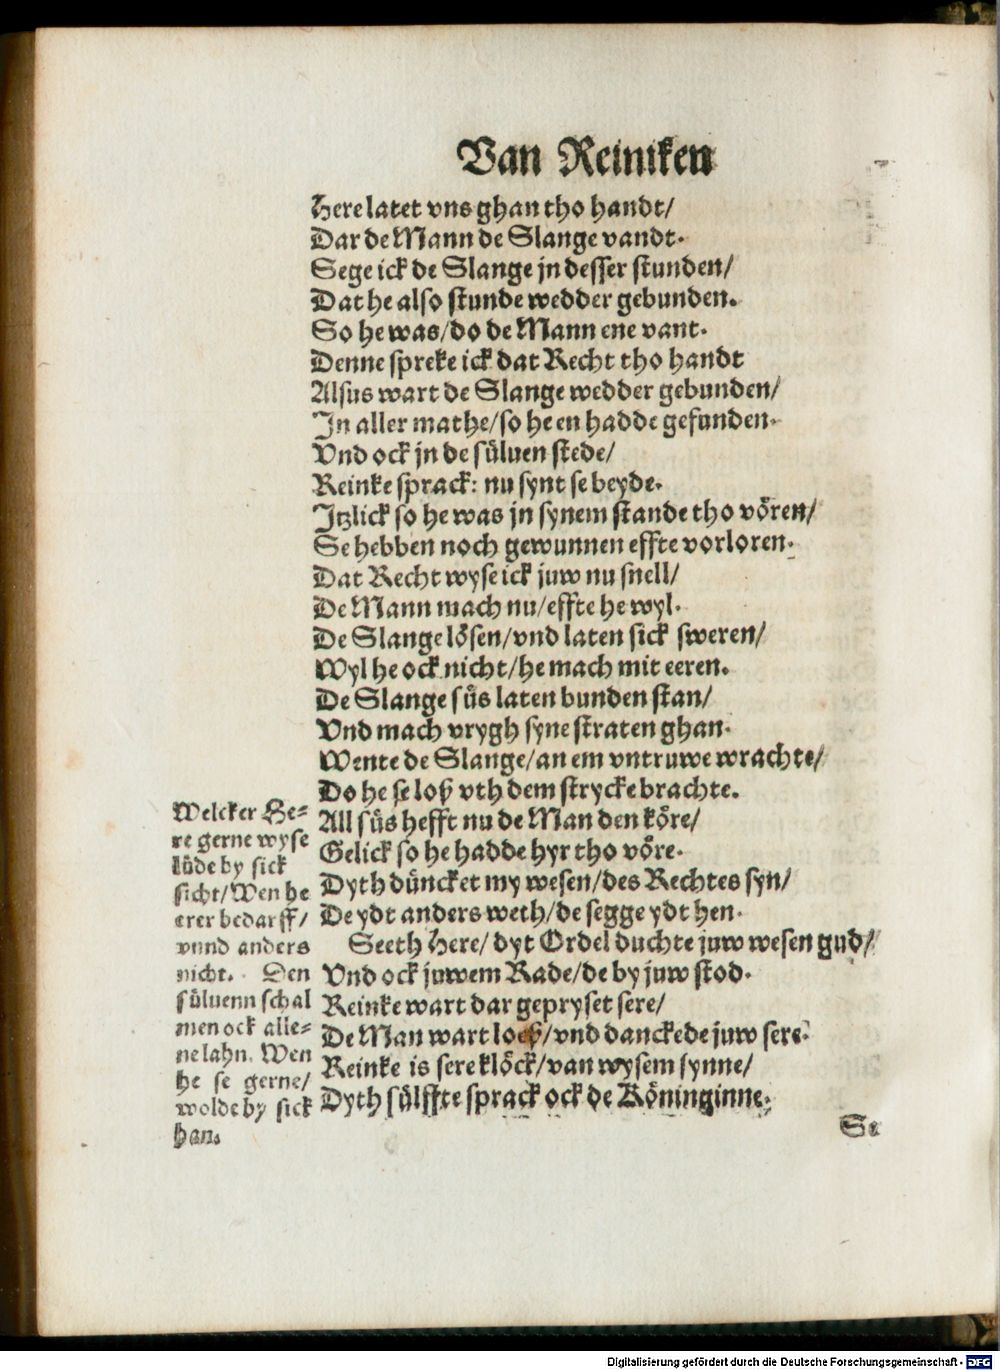 Van Reiniken
Here latet vns ghan tho handt/
Dar de Mann de Slange vandt.
Sege ick de Slange jn desser stunden/
Dat he also stunde wedder gebunden.
So he was/do de Mann ene vant.
Denne spreke ick dat Recht tho handt
Alsus wart de Slange wedder gebunden/
Jn aller mathe/so he en hadde gefunden.
Vnd ock jn de süluen stede/
Reinke sprack: nu synt se beyde.
Jtzlick so he was jn synem stande tho vören/
Se hebben noch gewunnen effte vorloren.
Dat Recht wyse ick juw nu snell/
De Mann mach nu/effte he wyl.
De Slange lösen/vnd laten sick sweren/
Wyl he ock nicht/he mach mit eeren.
De Slange süs laten bunden stan/
Vnd mach vrygh syne straten ghan.
Wente de Slange/an em vntruwe wrachte/
Do he se loß vth dem strycke brachte.
All süs hefft nu de Man den köre/
Gelick so he hadde hyr tho vöre.
Dyth düncket my wesen/des Rechtes syn/
De ydt anders weth/de segge ydt hen.
Seeth Here/dyt Ordel duchte juw wesen gud/
Vnd ock juwem Rade/de by juw stod.
Reinke wart dar gepryset sere/
De Man wart loeß/vnd danckede juw sere.
Reinke is sere klöck/van wysem synne/
Dyth sülffte sprack ock de Köninginne.
Welcker He=
re gerne wyse
lüde by sick
sicht/Wen he
erer bedarff/
vnnd anders
nicht. Den
süluenn schal
men ock alle=
ne lahn. Wen
he se gerne/
wolde by sick
han.
Se
Digitalisierung gefördert durch die Deutsche Forschungsgemeinschaft - DFG